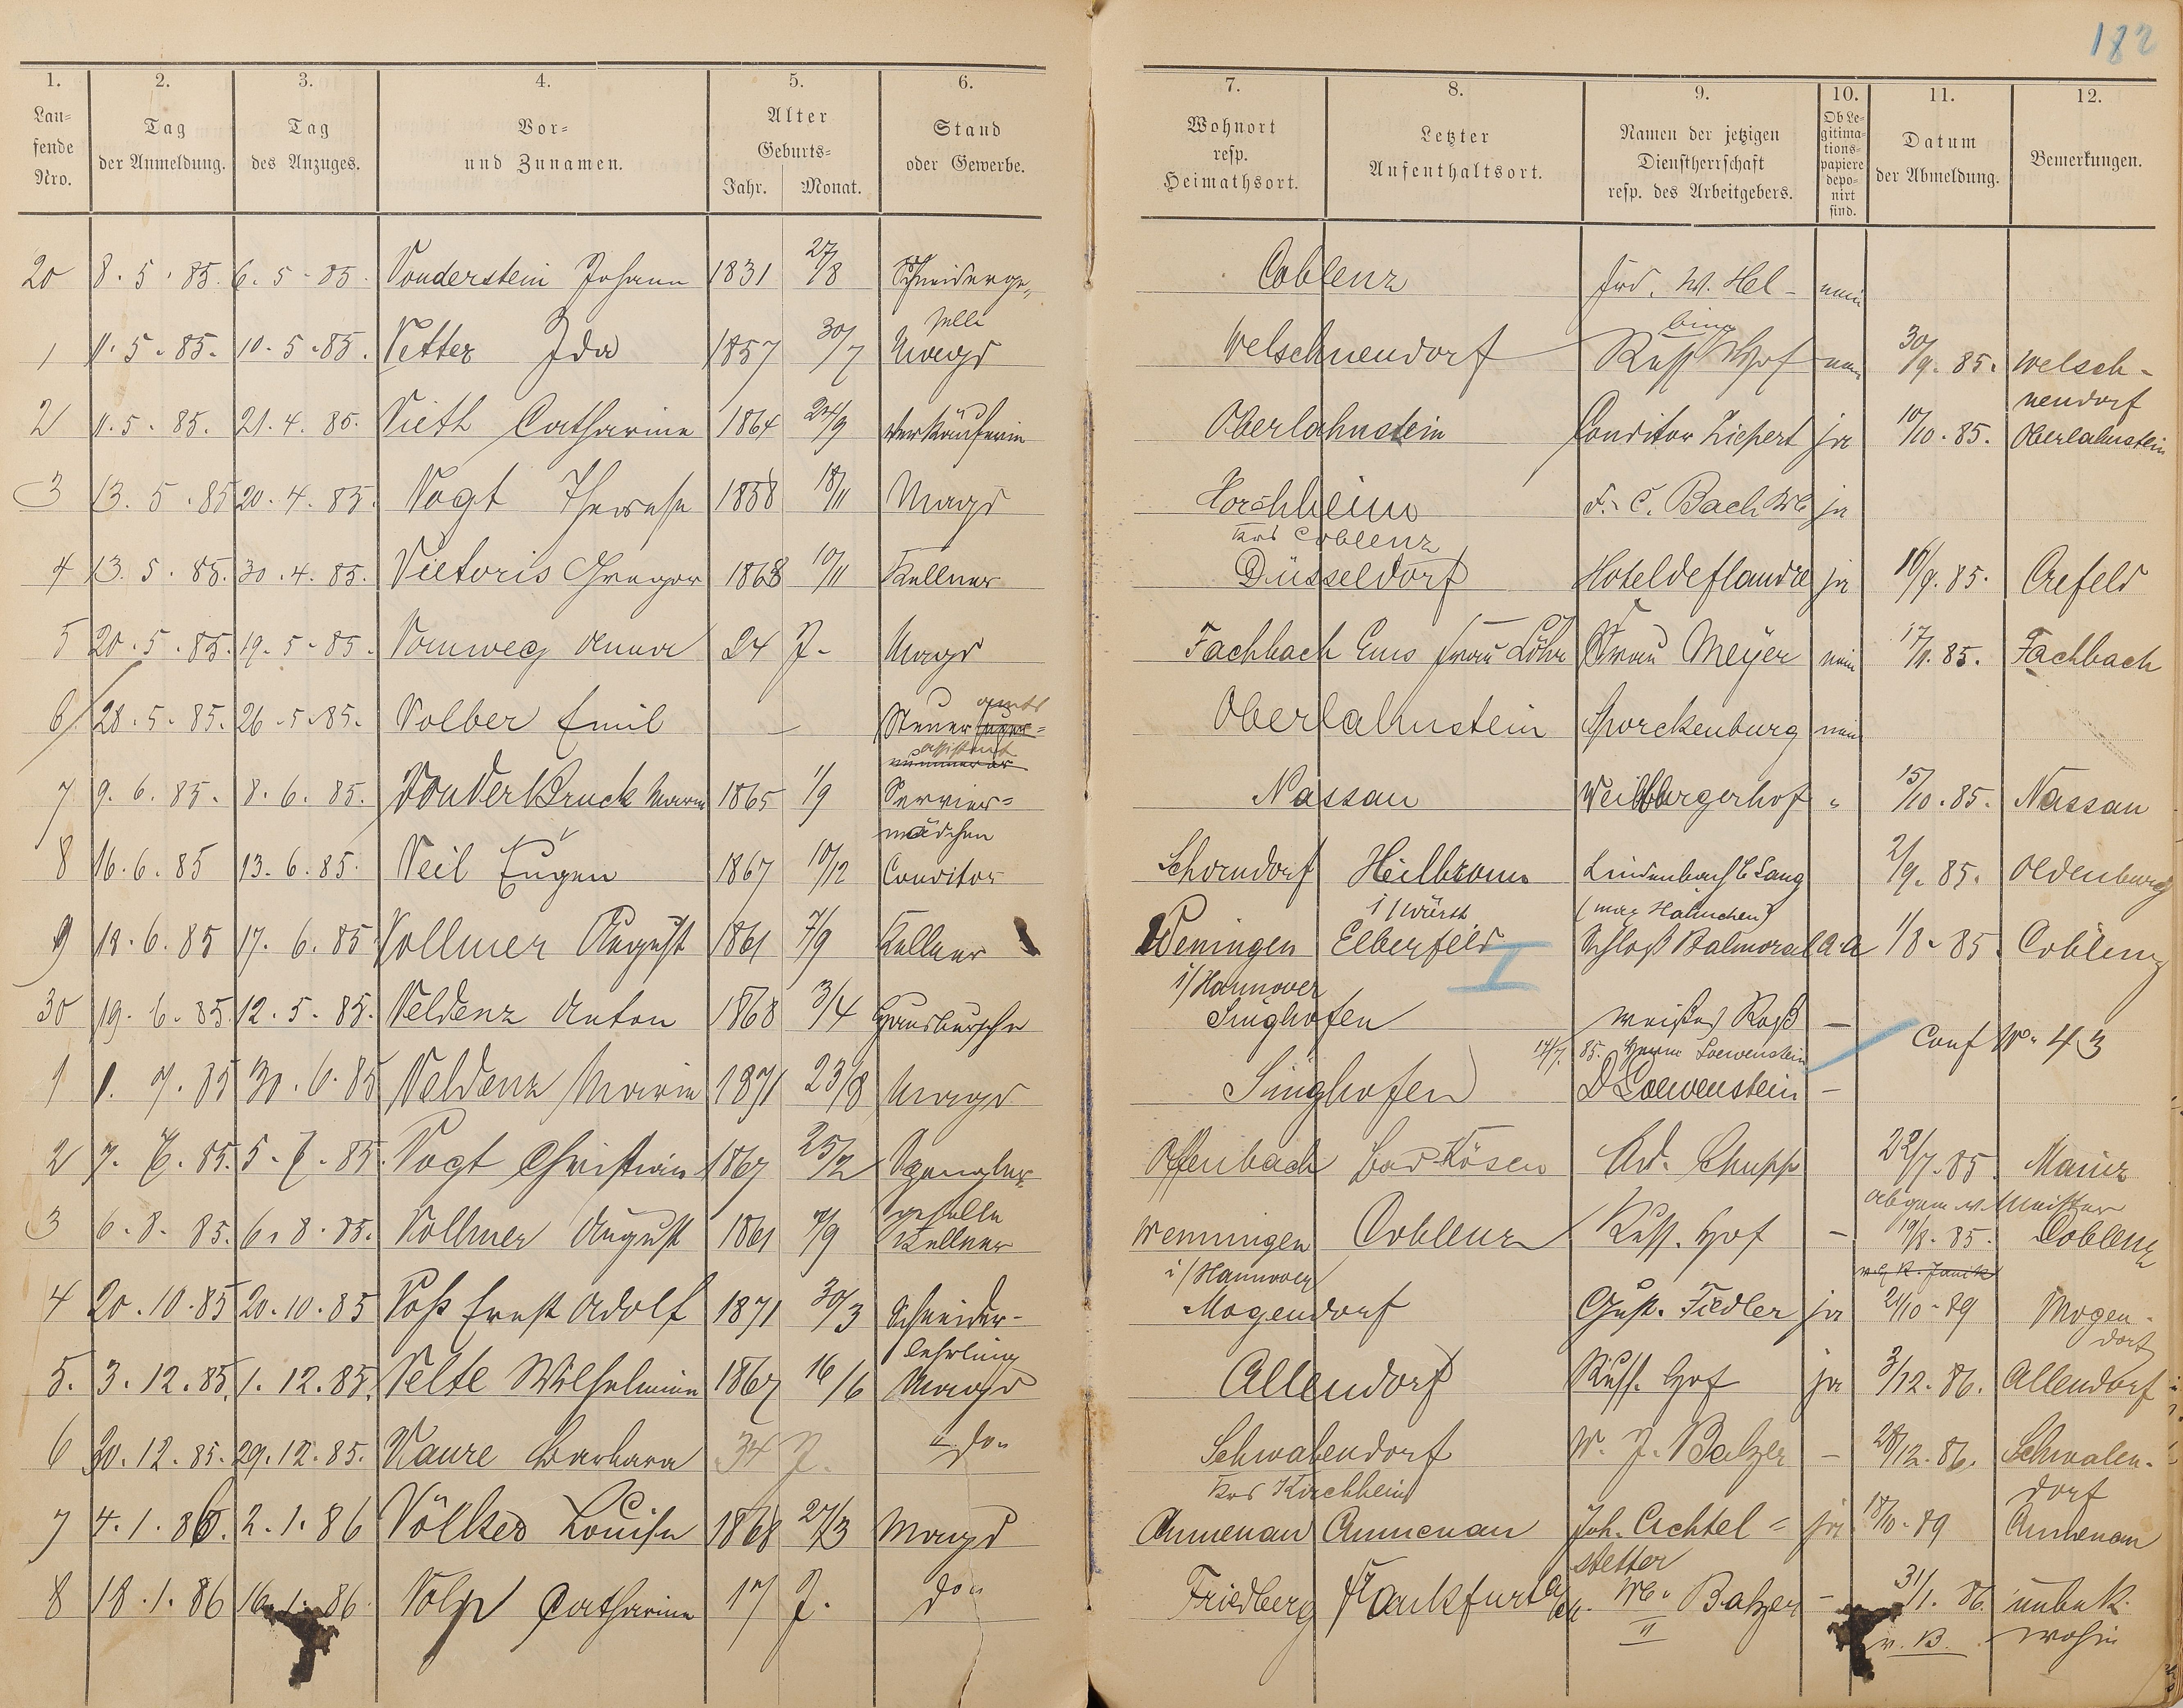 182
1. 2. 3. 4. 5. 6. 7. 8. 9. 10. 11. 12.
Lau-
fende
Nro.
Tag
der Anmeldung.
Tag
des Anzuges.
Vor-
und Zunamen.
Alter
Geburts-
Jahr. Monat.
Stand
oder Gewerbe.
Wohnort
resp.
Heimathsort.
Letzter
Aufenthaltsort.
Namen der jetzigen
Dienstherrschaft
resp. des Arbeitgebers.
Ob Le-
gitima-
tions-
papiere
depo-
nirt
sind.
Datum
der Abmeldung.
Bemerkungen.
20 8. 5. 85. 6. 5. 85. Vonderstein Johann 1831 27/8 Schneiderge- Coblenz W. Hel- nein
selle
bing
1 11. 5. 85. 10. 5. 85. Vetter Ida 1857 30/7 Magd Welschneudorf Russ. Hof nein 30/9. 85. Welsch-
neudorf
2 11. 5. 85. 21. 4. 85. Vieth Catharine 1864 24/9 Verkäuferin Oberlahnstein Conditor Liepert ja 10/10. 85. Oberlahnstein
3 13. 5. 85 20. 4. 85. Vogt Therese 1858 18/11 Magd Horchheim F. C. Bach We ja
Krs Coblenz
4 13. 5. 85. 30. 4. 85. Victoris Gregor 1868 10/11 Kellner Düsseldorf Hotel de flandre ja 16/9. 85. Crefeld
5 20. 5. 85. 19. 5. 85. Vomweg Anna 24 J. Magd Fachbach Ems Frau Löhr Frau Meyer nein 17/11. 85. Fachbach
amts
6 28. 5. 85. 26. 5. 85. Volber Emil — Steuer Oberlahnstein Sporckenburg nein
assistent
7 9. 6. 85. 8. 6. 85. Von der Bruck Marie 1865 1/9 Servier- Nassau Weilburgerhof " 15/10. 85. Nassau
mädchen
8 16. 6. 85 13. 6. 85. Veil Eugen 1867 10/12 Conditor Schorndorf Heilbronn Lindenbach b. Lang 2/9. 85. Oldenburg
i/Würth. (Max Hähnchen)
9 18. 6. 85 17. 6. 85 Vollmer August 1861 7/9 Kellner Weningen Elberfeld I Schloß Balmoral a. a 1/8. 85. Coblenz
i/Hannover
30 19. 6. 85. 12. 5. 85. Veldenz Anton 1868 3/4 Hausbursche Singhofen weißes Roß —
14/7. 85. Herrn Loewenstein Conf No. 43
1 1. 7. 85 30. 6. 85 Veldenz Marie 1871 23/8 Magd Singhofen D Loewenstein —
2 7. 7. 85. 5. 7. 85. Vogt Christian 1867 25/2 Spengler- Offenbach Bad Kösen Ad. Schupp 22/7. 85 Mainz
geselle abgem. v. Meister
3 6. 8. 85. 6. 8. 85. Vollmer August 1861 7/9 Kellner Wenningen Coblenz Russ. Hof — 19/8. 85. Coblenz
i/Hannover
4 20. 10. 85 20. 10. 85 Voß Ernst Adolf 1871 30/3 Schneider- Mogendorf Gust. Fiedler ja 2/10. 89 Mogen-
lehrling dorf
5. 3. 12. 85. 1. 12. 85. Velte Wilhelmine 1867 16/6 Magd Allendorf Russ. Hof ja 3/12. 86. Allendorf
6 30. 12. 85. 29. 12. 85. Vaure Barbara 34 J. do. Schwabendorf W. J. Balzer — 28/12. 86. Schwaben-
Krs Kirchhein dorf
7 4. 1. 86. 2. 1. 86 Völker Louise 1868 27/3 Magd Aumenau Aumenau Joh. Achtel- ja 18/10. 89 Aumenau
stetter
8 18. 1. 86 16. 1. 86. Volp Catharine 17 J. do. Friedberg Frankfurt a/M. We. Balzer — 31/1. 86. unbek.
II v. B. wohin